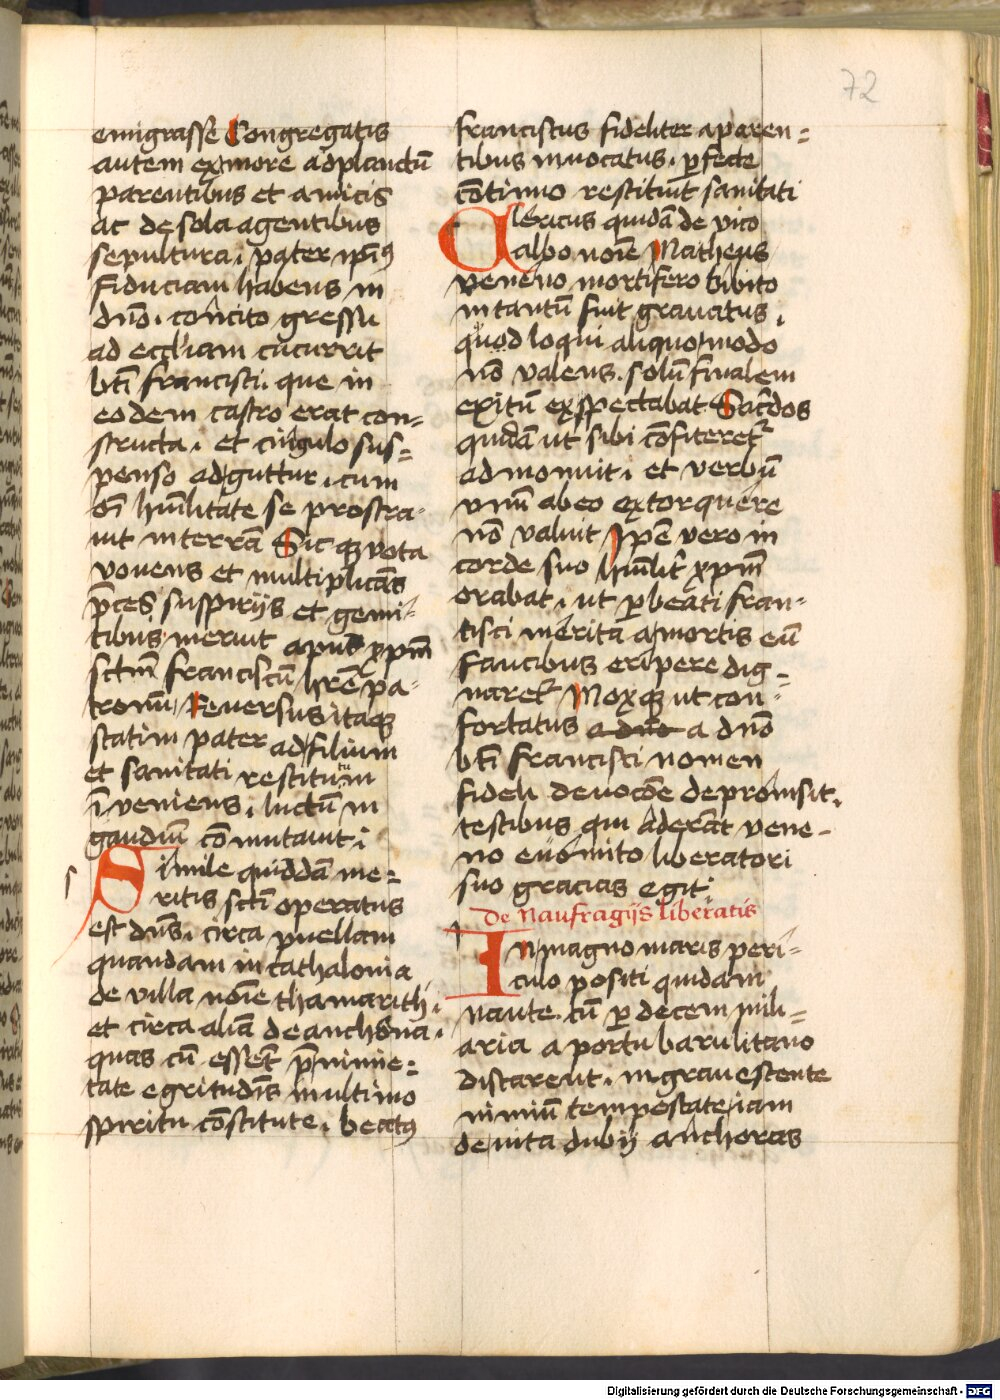 72
emigrasse Congregatis
autem ex more ad planctū
parentibus et amicis
ac de sola agentibus
sepultura, pater ip̄iꝰ
fiduciam habens in
dn̄o. concito gressu
ad eccl̄iam cucurrit
bt̄i francisci. que in
eodem castro erat con=
structa, et cingulo sus=
penso ad guttur, cum
om̄i hūilitate se prostra-
uit in terrā Sicqꝫ vota
vovens et multiplicās
p̄ces suspirijs et gemi-
tibus meruit apud xp̄m
sct̄m franciscū h̄re pa-
tronū, Reversus itaqꝫ
statim pater ad filium
et sanitati restitutum
īveniens, luctum in
gaudiū cōmutauit,
Simile quiddā me=
ritis sct̄i operatus
est dn̄s, circa puellam
quandam in cathalonia
de villa noīe thamarith,
et circa aliā de anchona,
quas cū essēt p̄ nimie=
tate egritudīs in ultimo
spiritu cōstitute, beatꝰ
franciscus fideliter a paren=
tibus invocatus, ꝑfecte
cōtinuo restituit sanitati
Clericus quidā de vico
albo noīe Matheus
veneno mortifero bibito
in tantū fuit grauatus,
quod loqui aliquo modo
nō valens. solū finalem
exitū exspectabat Sac̄dos
quidā ut sibi cōfiteret̄
admonuit, et verbū
vnū ab eo extorquere
nō valuit Ip̄e vero in
corde suo hūilit̄ xp̄m
orabat, ut ꝑ beati fran-
cisci merita a mortis eū
faucibus eripere dig=
naret̄ Moxqꝫ ut con-
fortatus a dn̄o a dn̄o
bt̄i francisci nomen
fideli devocōe depromsit,
testibus qui aderāt vene-
no evomito liberatori
suo gracias egit
De Naufragijs liberatis
In magno maris peri-
culo positi quidam
naute. cū ꝑ decem mili=
aria a portu barulitano
distarent, ingravescente
nimiū tempestate, iam
de vita dubij anchoras
Digitalisierung gefördert durch die Deutsche Forschungsgemeinschaft - DFG